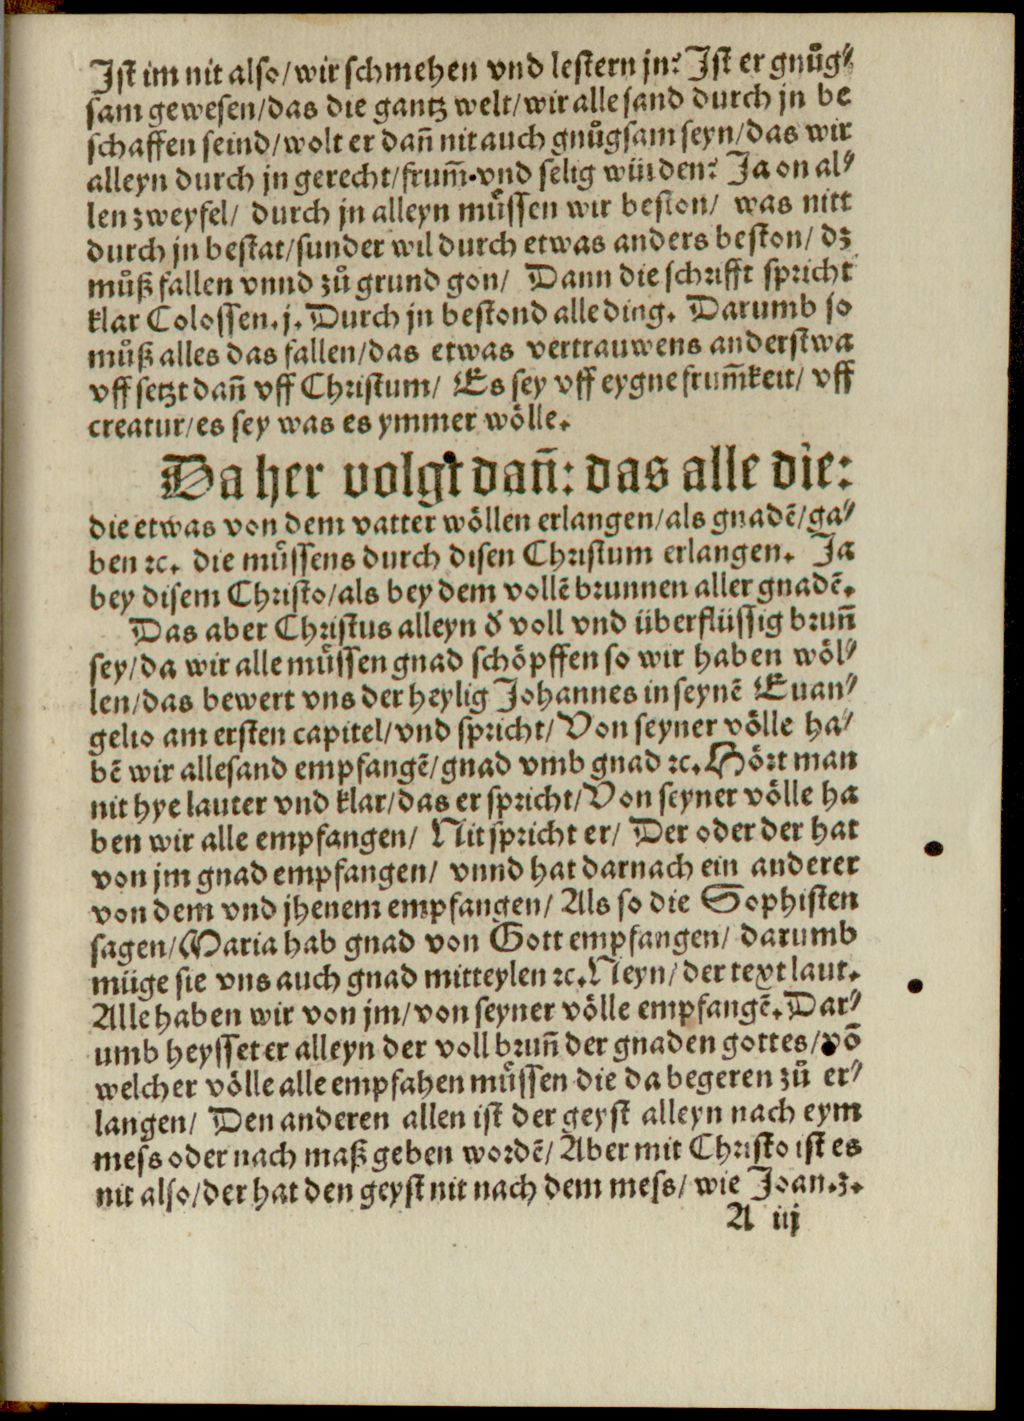 Jst im nit also/wir schmehen vnd lestern jn? Jst er gnůg⸗
sam gewesen/das die gantz welt/wir alle sand durch jn be
schaffen seind/wolt er dañ nit auch gnůgsam seyn/das wir
alleyn durch jn gerecht/frum̃.vnd selig würden? Ja on al⸗
len zweyfel/ durch jn alleyn můssen wir beston/ was nitt
durch jn bestat/sunder wil durch etwas anders beston/ dz
můß fallen vnnd zů grund gon/ Dann die schrifft spricht
klar Colossen.j. Durch jn bestond alle ding. Darumb so
můß alles das fallen/das etwas vertrauwens anderstwa
vff setzt dañ vff Christum/ Es sey vff eygne frum̃keit/ vff
creatur/es sey was es ymmer wölle.
Da her volgt dañ: das alle die:
die etwas von dem vatter wöllen erlangen/als gnadē/ga⸗
ben ꝛc. die můssens durch disen Christum erlangen. Ja
bey disem Christo/als bey dem vollē brunnen aller gnadē.
Das aber Christus alleyn ď voll vnd überflüssig brun̄
sey/da wir alle můssen gnad schöpffen so wir haben wöl⸗
len/das bewert vns der heylig Johannes in seynē Euan⸗
gelio am ersten capitel/vnd spricht/Von seyner völle ha⸗
bē wir allesand empfangē/gnad vmb gnad ꝛc. Hört man
nit hye lauter vnd klar/das er spricht/Von seyner völle ha
ben wir alle empfangen/ Nit spricht er/ Der oder der hat
von jm gnad empfangen/ vnnd hat darnach ein anderer
von dem vnd jhenem empfangen/ Als so die Sophisten
sagen/Maria hab gnad von Gott empfangen/ darumb
müge sie vns auch gnad mitteylen ꝛc. Neyn/ der text laut.
Alle haben wir von jm/von seyner völle empfangē. Dar⸗
umb heysset er alleyn der voll brun̄ der gnaden gottes/võ
welcher völle alle empfahen můssen die da begeren zů er⸗
langen/ Den anderen allen ist der geyst alleyn nach eym
mess oder nach maß geben wordē/ Aber mit Christo ist es
nit also/der hat den geyst nit nach dem mess/ wie Joan.3.
A iij